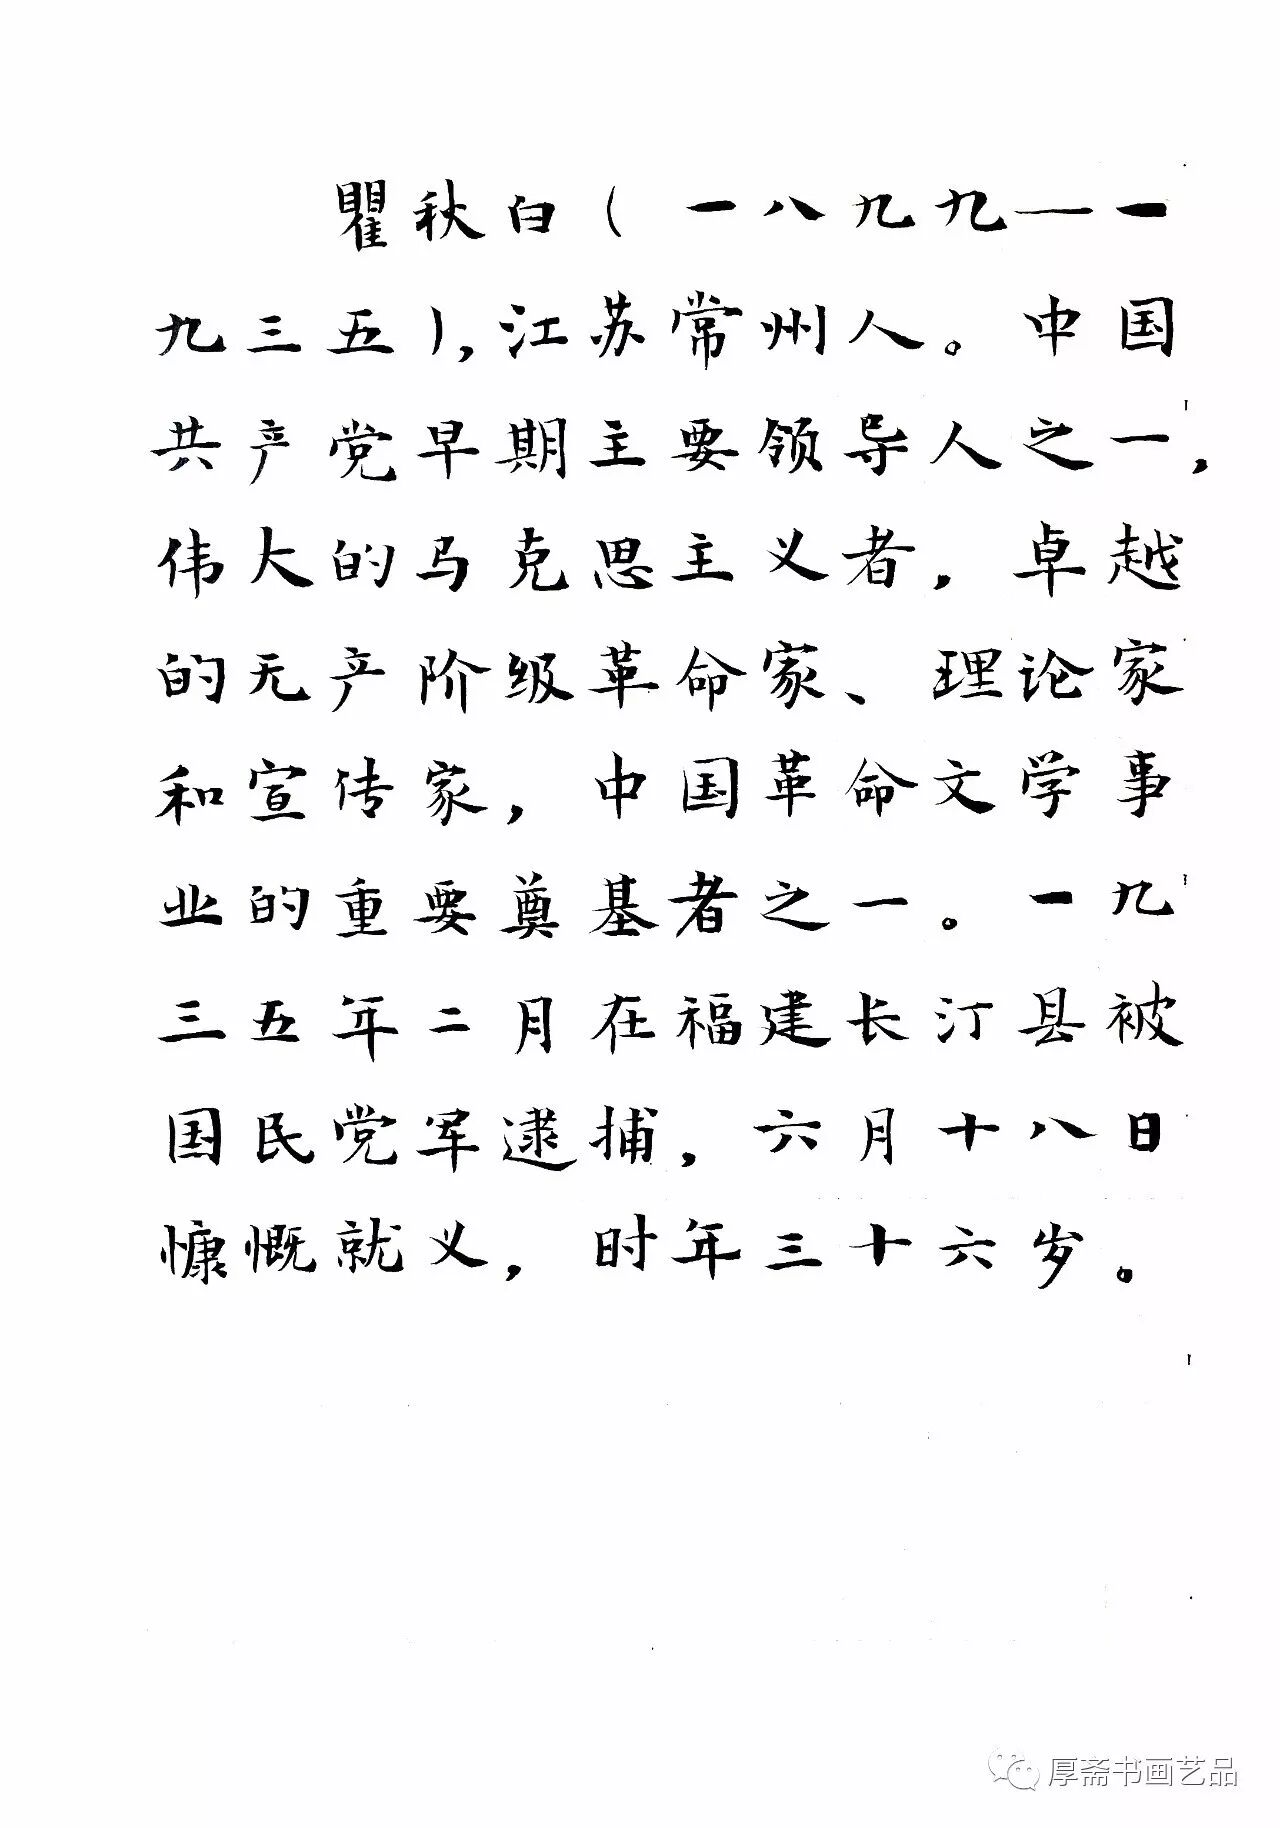 瞿秋白(一八九九——一
九三五),江苏常州人。中国
共产党早期主要领导人之一,
伟大的马克思主义者,卓越
的无产阶级革命家、理论家
和宣传家,中国革命文学事
业的重要奠基者之一。一九
三五年二月在福建长汀县被
国民党军逮捕,六月十八日
慷慨就义,时年三十六岁。
厚斋书画艺品